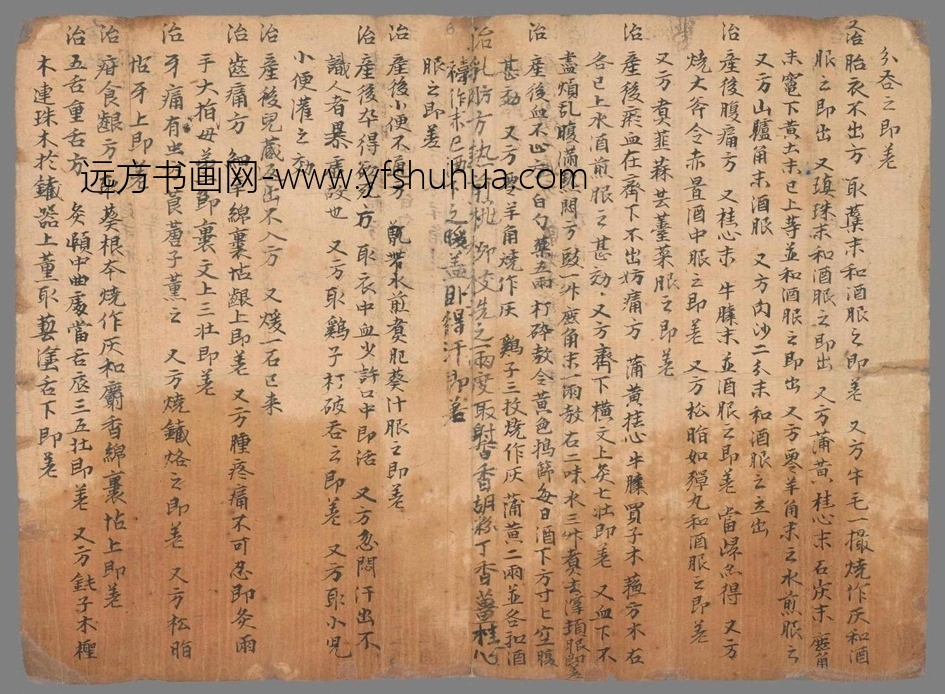 分吞之即差
治胎衣不出方 取藁末和酒服之即差 又方牛毛一撮燒作灰和酒
服之即出 又瑱珠末和酒服之即出 又方蒲黃桂心末石灰末
末竈下黃土末已上等並和酒服之即出 又方零羊角末之水煎服之
又方山驢角末酒服 又方內沙二分末和酒服之立出
治產後腹痛方 又桂心末牛膝末並酒服之即差 當歸亦得 又方
燒大斧令赤置酒中服之即差 又方松脂如彈丸和酒服之即差
又方煑韮蒜芸薹菜服之即差
治產後瘀血在齊下不出妨痛方 蒲黃桂心牛膝買子木 方木右
各已上水酒煎服之甚効 又方齊下橫文上灸七壯即差 又血下不
盡煩乱腹滿 悶方 豉一升 角末一兩熬右二味水三升煑去滓頓服即差
治產後血不止方 白勺藥五兩打碎熬令黃色搗篩每日酒下方寸匕空腹
甚効 又方零羊角燒作灰 鷄子三枚燒作灰 蒲黃二兩並各和酒
服之即差
治乳肪方 之兩度取射香胡粉丁香薑桂心
末已 暖盖卧得汗即差
治產後小便不 方 甑帶水煎煑肥葵汁服之即差
治產後卒得 方 取衣中血少許口中即活 又方忽悶汗出不
識人者暴虛故也 又方取鷄子打破吞之即差 又方取小兒
小便灌之効
治產後兒藏 出不入方 又煖一石已来
治齒痛方 綿裹怗齦上即差 又方腫疼痛不可忍即灸兩
手大拍母 即裏文上三壯即差
治牙痛有虫 莨菪子薰之 又方燒鐵烙之即差 又方松脂
怗牙上即
治疳食齦方 葵根本燒作灰和麝香綿裹怗上即差
治五舌重舌方 灸頰中曲處當舌底三五壯即差 又方
木連珠木於鐵器上薰取 塗舌下即差
远方书画网-www.yfshuhua.com